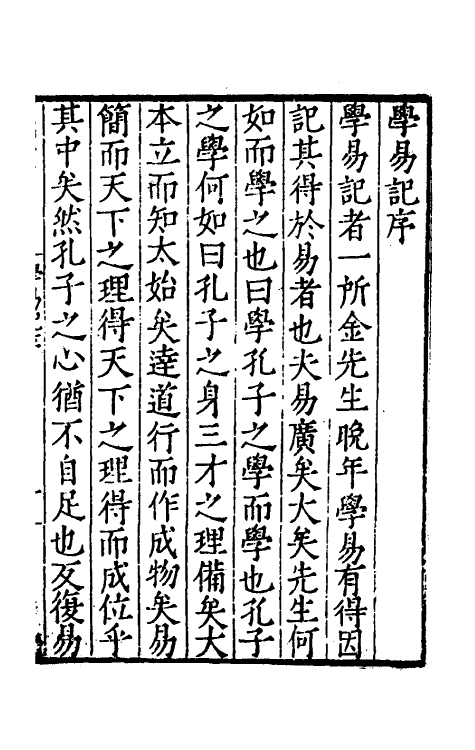 學易記序
學易記者一所金先生晚年學易有得因
記其得於易者也夫易廣矣大矣先生何
如而學之也曰學孔子之學而學也孔子
之學何如曰孔子之身三才之理備矣大
本立而知太始矣達道行而作成物矣易
簡而天下之理得天下之理得而成位乎
其中矣然孔子之心猶不自足也反復易